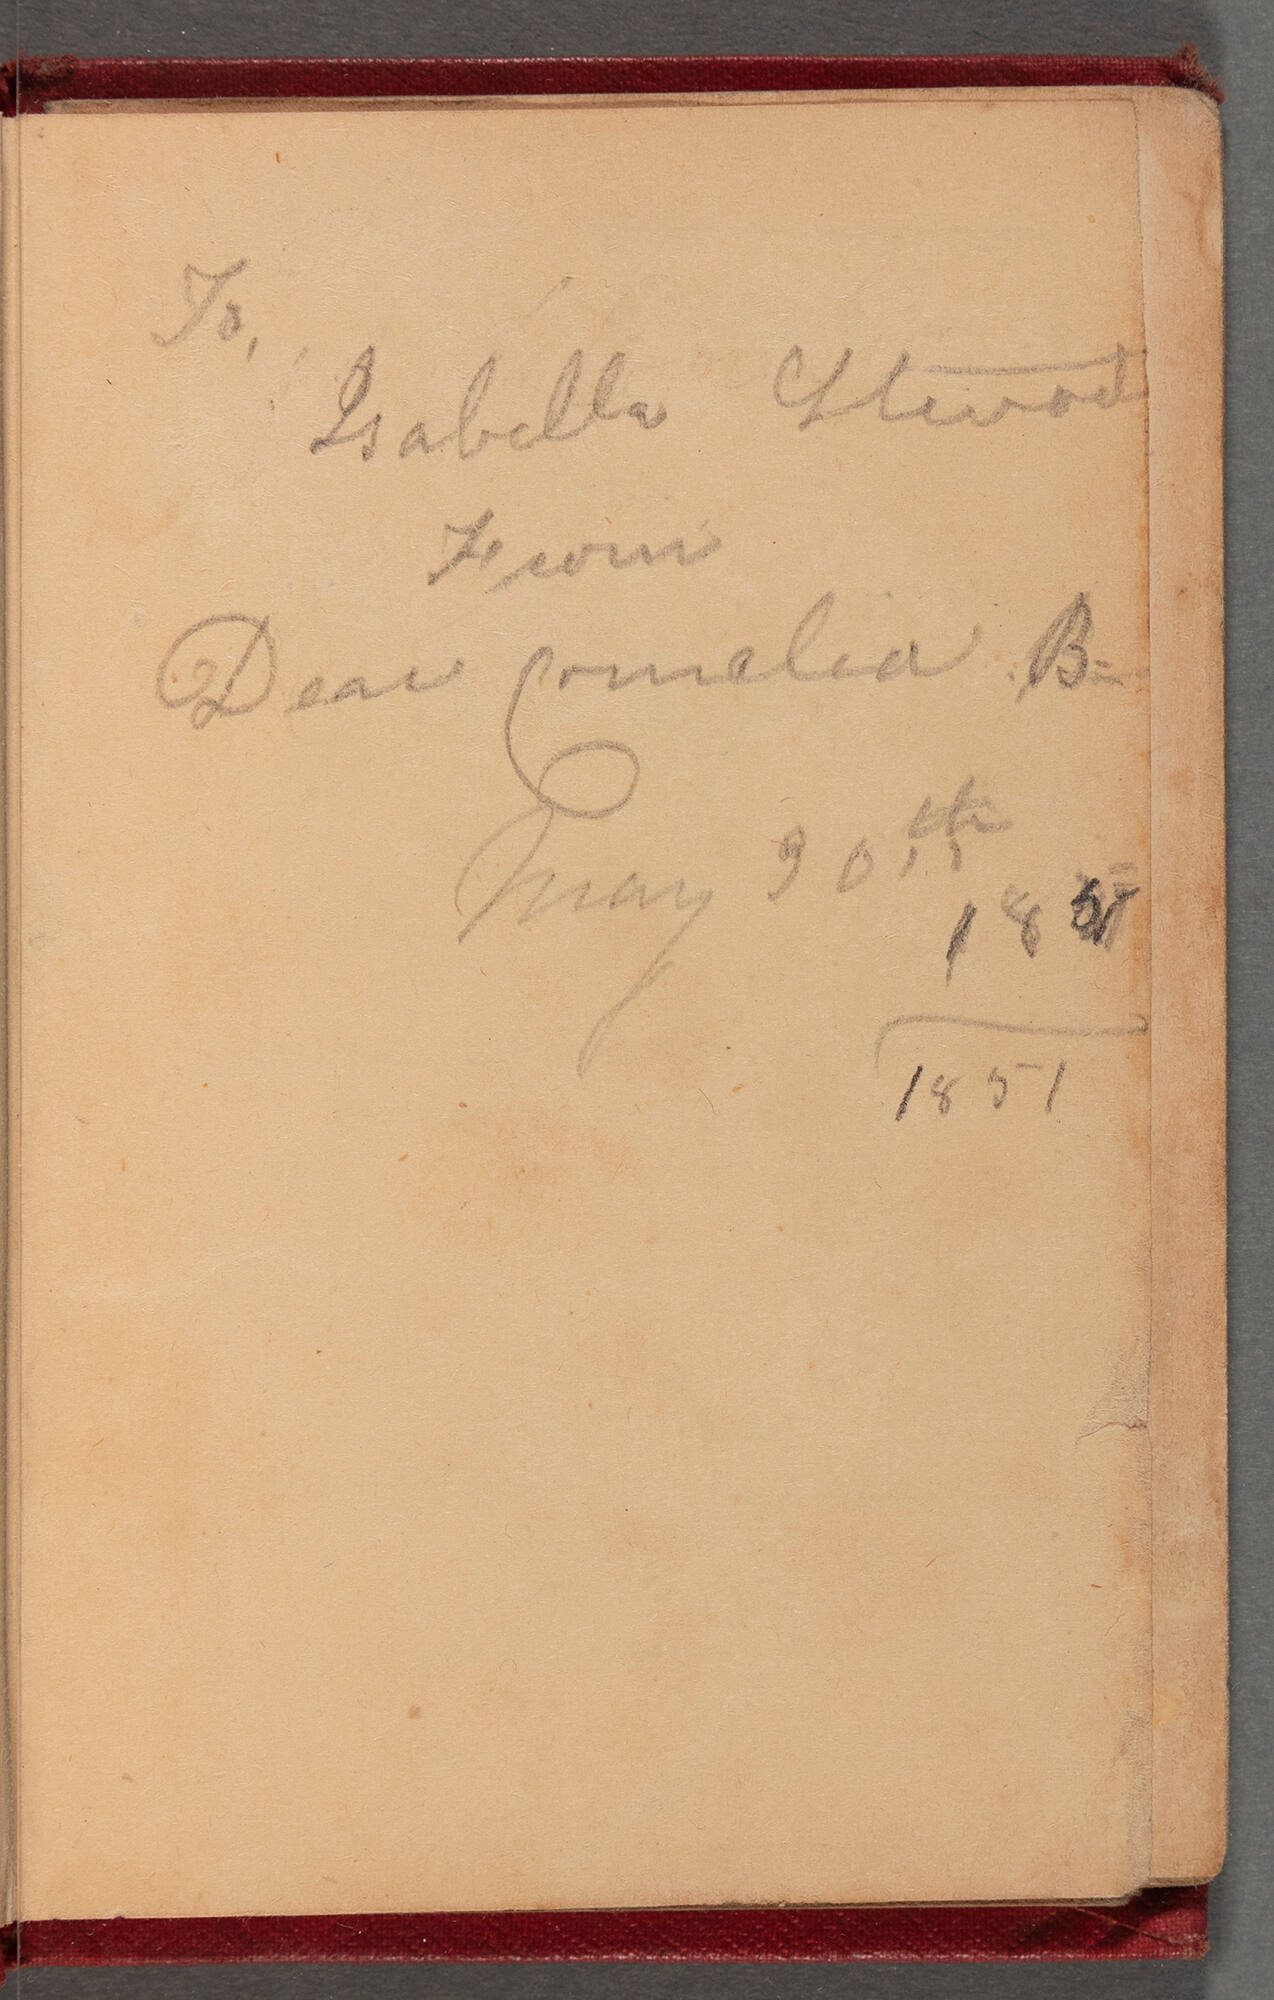 To,
Isabella Atwood
From
Dear Cornelia B=
May 30th
1851
1851